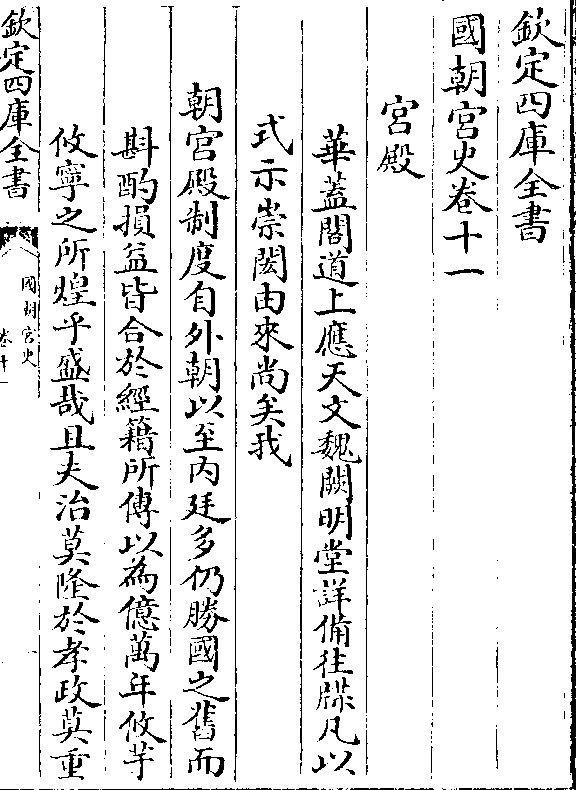 欽定四庫全書
國朝宮史卷十一
宮殿
華蓋閣道上應天文魏闕明堂詳備往牒凡以
式示崇閎由來尚矣我
朝宮殿制度自外朝以至内廷多仍勝國之舊而
斟酌損益皆合於經籍所傳以為億萬年攸芋
攸寧之所煌乎盛哉且夫治莫隆於孝政莫重
欽定四庫全書
國朝宮史
卷十一